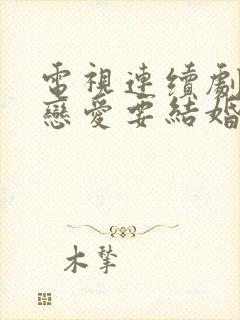 電視連續劇
戀愛要結婚
木摯